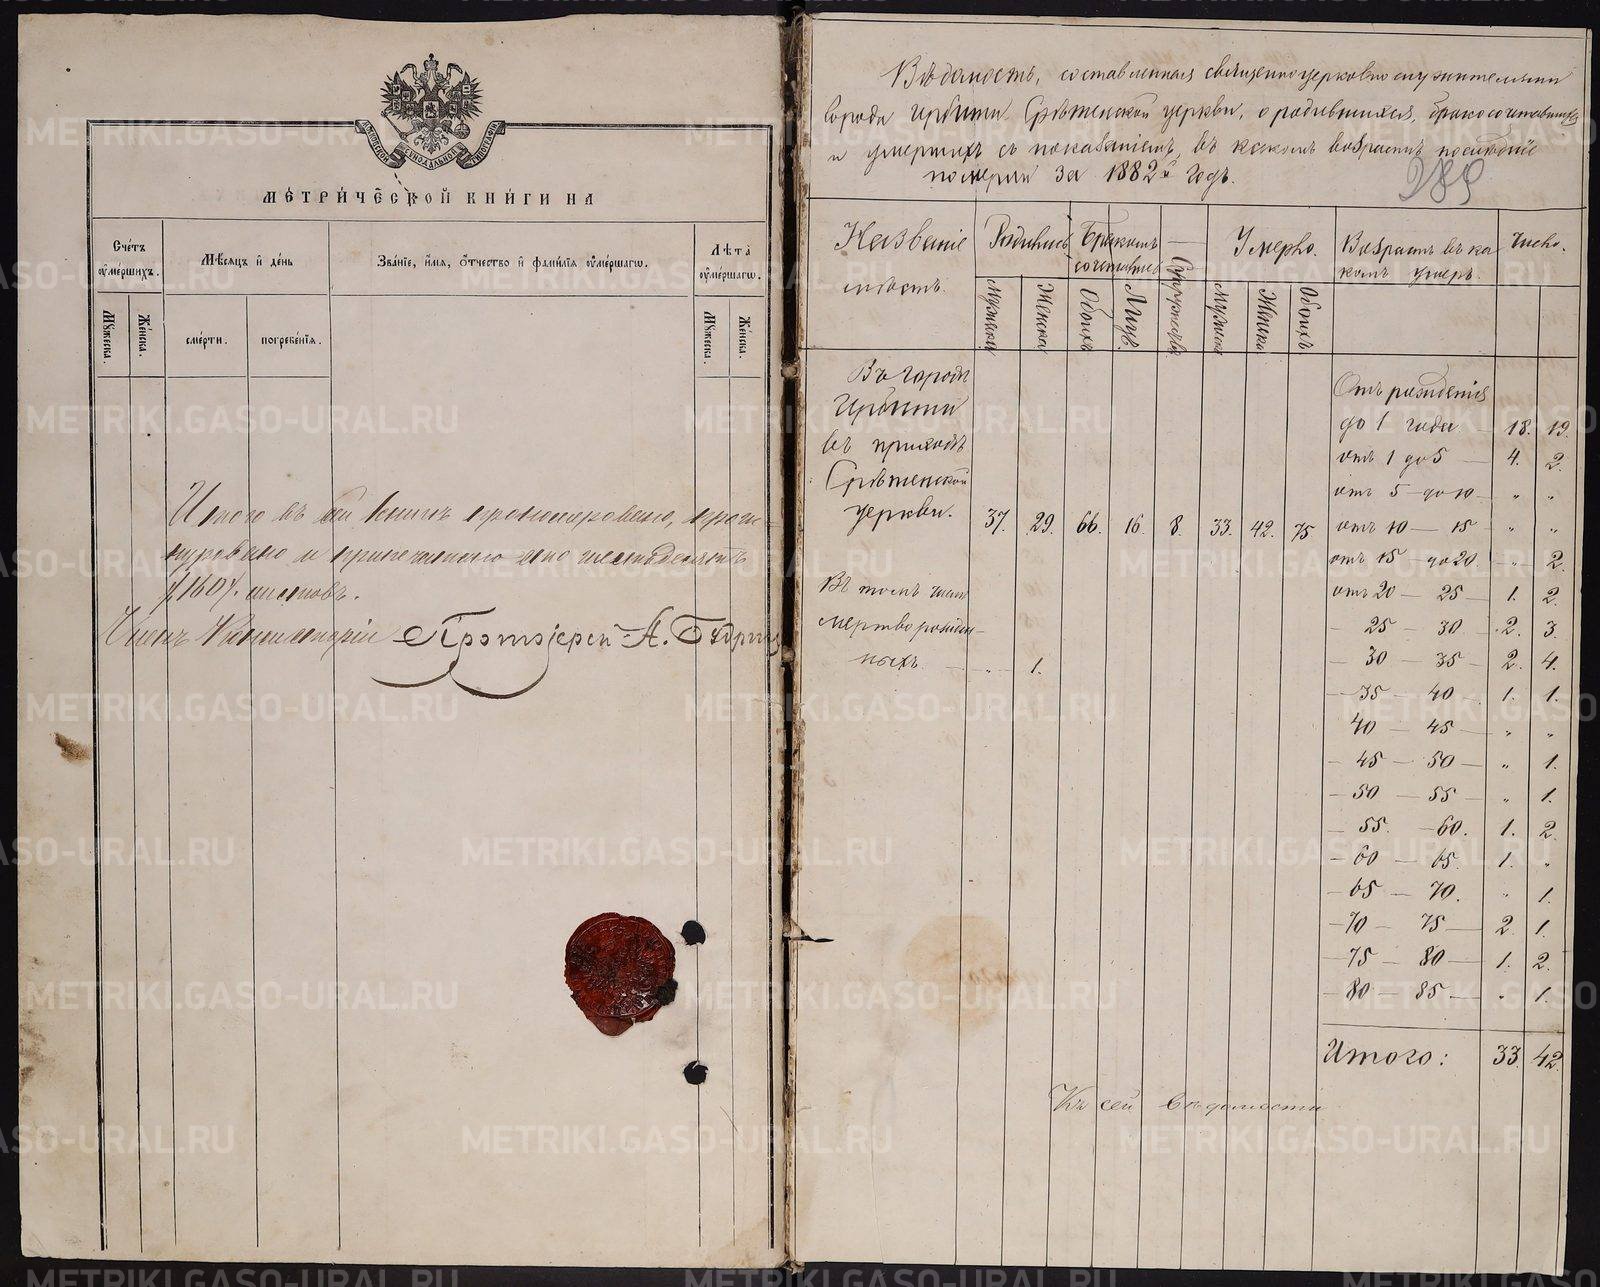 МОСКОВСКОЙ СѴНОДАЛЬНОЙ ТИПОГРАФІИ
МЕТРИЧЕСКОЙ КНИГИ НА
Счетъ оумершихъ.
Мѣсяцъ и день
Званіе, имя, отчество и фамилія оумершагω.
Лѣта оумершагω.
Мꙋжеска.
Женска.
смерти.
погребенія.
Мꙋжеска.
Женска.
Итого въ сей книгѣ пронумеровано, прошну-
ровано и припечатано сто шестьдесятъ
/160/ листовъ.
Членъ Консисторіи Протоіерей А.
Вѣдомость, составленная священноцерковнослужителями
города Ирбити Срѣтенской церкви, о родившихся, бракосочетавшихся
и умершихъ съ показаніемъ, въ какомъ возрастѣ послѣдніе
померли за 1882й годъ.
289
Названіе мѣстъ.
Родились
Бракомъ сочетались
Умерло.
Возрастъ въ ка
комъ умеръ.
Число.
Мужска
Женска
Обоихъ
Лицъ.
Супружествъ
Мужска
Женска
Обоихъ
Въ городѣ
Ирбити
въ приходѣ
Срѣтенской
церкви. 37. 29. 66. 16. 8. 33. 42. 75
Въ томъ числѣ
мертворожден-
ныхъ. — „ — 1.
Отъ рожденія
до 1 года 18. 19.
отъ 1 до 5 — 4. 2.
отъ 5 — до 10 — „ „
отъ 10 — 15 — „ „
отъ 15 до 20. — „ 2.
отъ 20 — 25 — 1. 2.
— 25 — 30 — 2. 3.
— 30 — 35 — 2. 4.
— 35 — 40 1. 1.
40 — 45 — „ „
— 45 — 50 — „ 1.
— 50 — 55 — „ 1.
— 55. — 60. 1. 2.
— 60 — 65. 1. „
— 65 — 70. „ 1.
— 70 — 75 — 2. 1.
— 75 — 80 — 1. 2.
— 80 — 85 — „ 1.
Итого: 33. 42
Къ сей вѣдомости
METRIKI.GASO-URAL.RU